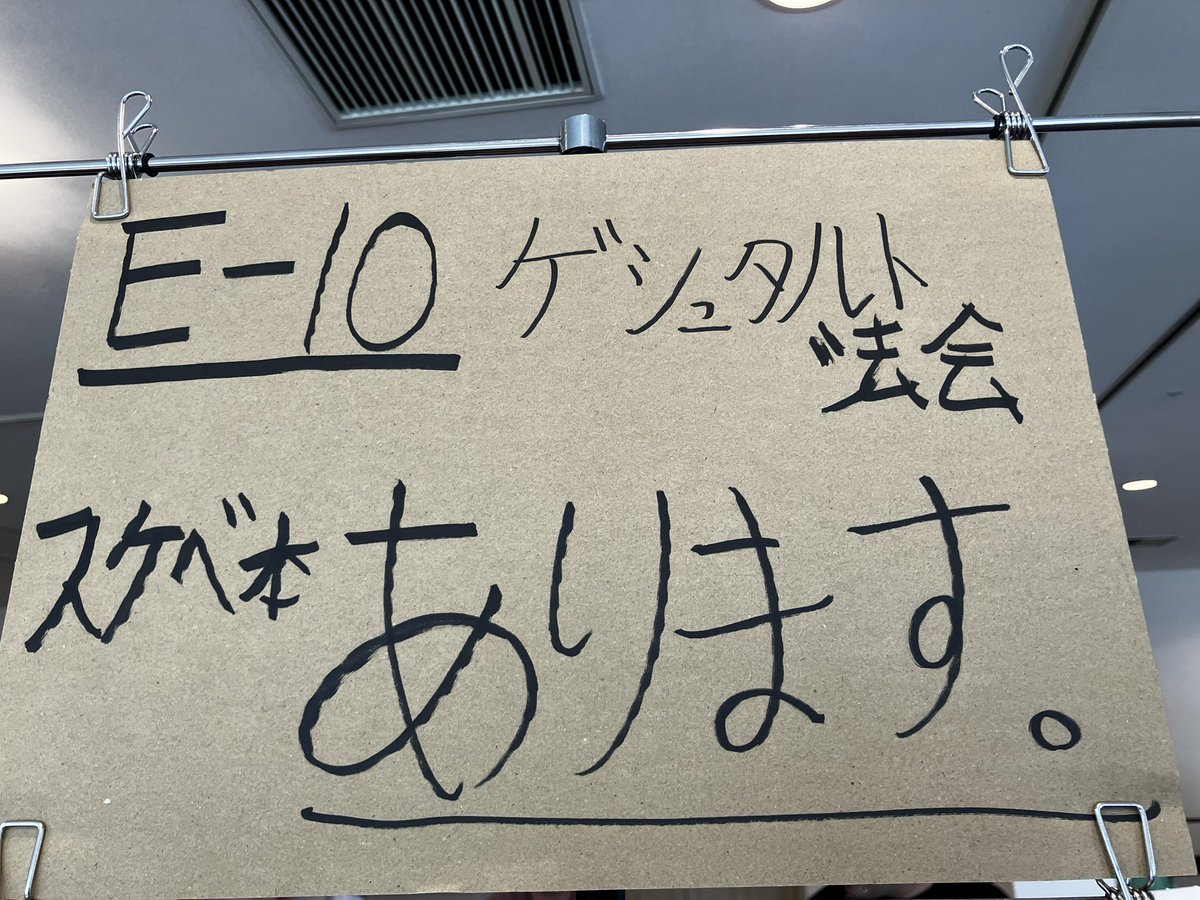 E-10 ゲシュタルト
法会
スケベ本 あります。